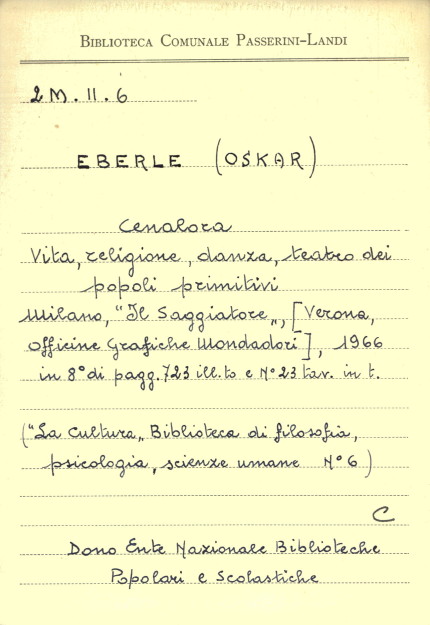 BIBLIOTECA COMUNALE PASSERINI-LANDI
2 M. II. 6
EBERLE (OSKAR)
Cenalora
Vita, religione, danza, teatro dei
popoli primitivi
Milano, "Il Saggiatore„, [Verona,
Officine Grafiche Mondadori], 1966
in 8° di pagg. 723 ill.to e N° 23 tav. in t.
("La Cultura„ Biblioteca di filosofia,
psicologia, scienze umane N° 6)
C
Dono Ente Nazionale Biblioteche
Popolari e Scolastiche